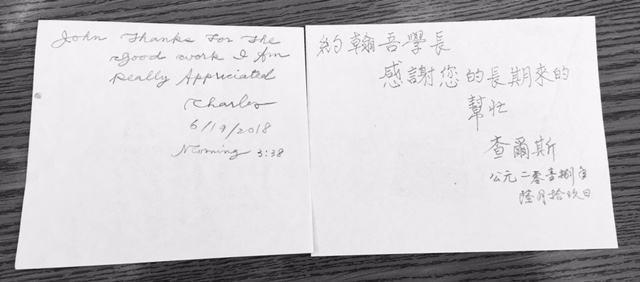 John Thanks For The
Good work I Am
Really Appriciated
Charles
6/19/2018
Morning 3:38
約翰吾學長
感謝您的長期來的
幫忙
查爾斯
公元二零壹捌年
陸月拾玖日